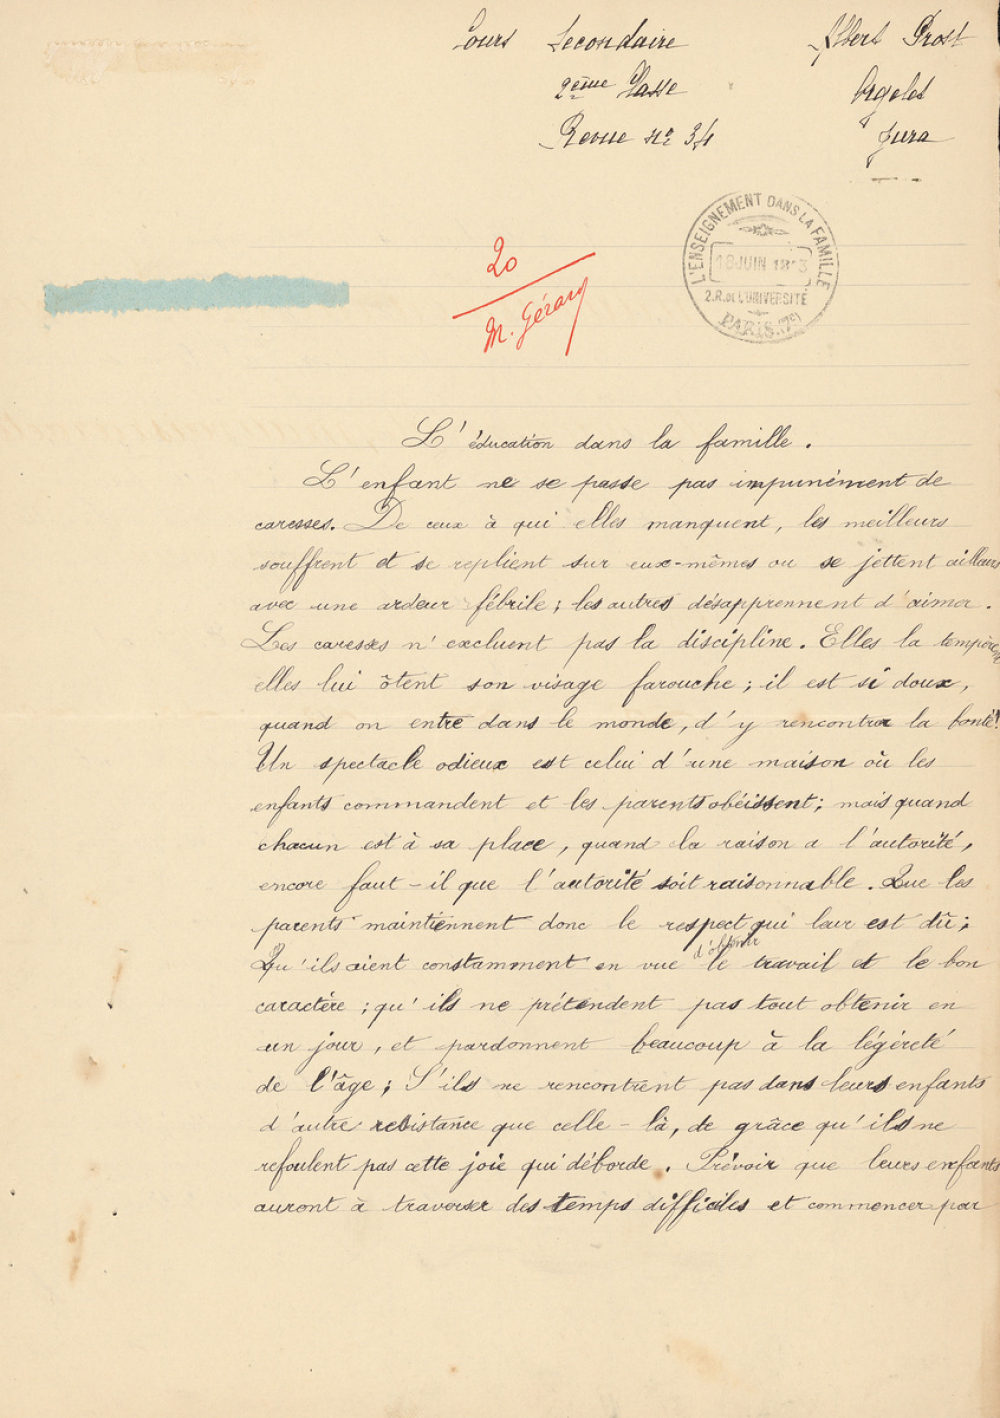 Cours Secondaire Albert Prost
2ème Classe Orgelet
Revue nº 34 Jura
L'ENSEIGNEMENT DANS LA FAMILLE
18 JUIN
2.R.DE L'UNIVERSITÉ
PARIS (7e)
20
M. Gérary
L'éducation dans la famille.
L'enfant ne se passe pas impunément de
caresses. De ceux à qui elles manquent, les meilleurs
souffrent et se replient sur eux-mêmes ou se jettent ailleurs
avec une ardeur fébrile ; les autres désapprennent d'aimer.
Les caresses n'excluent pas la discipline. Elles la tempèrent
elles lui ôtent son visage farouche ; il est si doux,
quand on entre dans le monde, d'y rencontrer la bonté !
Un spectacle odieux est celui d'une maison où les
enfants commandent et les parents obéissent ; mais quand
chacun est à sa place, quand la raison a l'autorité,
encore faut-il que l'autorité soit raisonnable. Que les
parents maintiennent donc le respect qui leur est dû ;
Qu'ils aient constamment en vue d'obtenir le travail et le bon
caractère ; qu'ils ne prétendent pas tout obtenir en
un jour, et pardonnent beaucoup à la légéreté
de l'âge ; S'ils ne rencontrent pas dans leurs enfants
d'autre résistance que celle-là, de grâce qu'ils ne
refoulent pas cette joie qui déborde. Prévoir que leurs enfants
auront à traverser des temps difficiles et commencer par